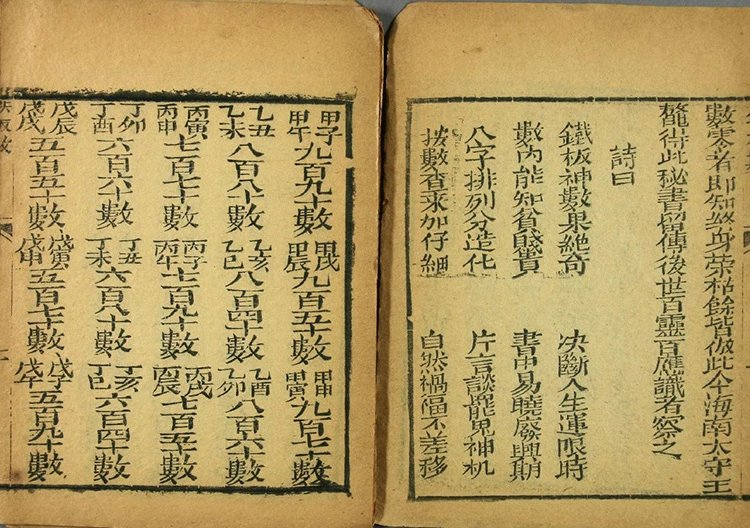 數零者即知終身荣枯餘皆倣此今海南太守王
鰲得此秘書留傳後世百靈百應識者察之
詩曰
鐵板神數果絶奇 决斷人生運限時
數內能知貧賤貴 書中易曉廢興期
八字排列分造化 片言談見神机
按數查來加仔細 自然禍福不差移
甲子甲午九百九十數 甲戌甲辰九百五十數 甲申甲寅九百七十數
乙丑乙未八百八十數 乙亥乙巳八百四十數 乙酉乙卯八百六十數
丙寅丙申七百七十數 丙子丙午七百九十數 丙戌丙辰七百五十數
丁卯丁酉六百六十數 丁丑丁未六百八十數 丁亥丁巳六百四十數
戊辰戊戌五百五十數 戊寅戊申五百七十數 戊子戊午五百九十數